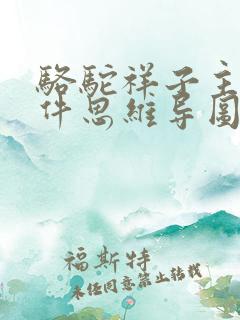 駱駝祥子主
件思維導圖
福斯特
未经同意禁止转载